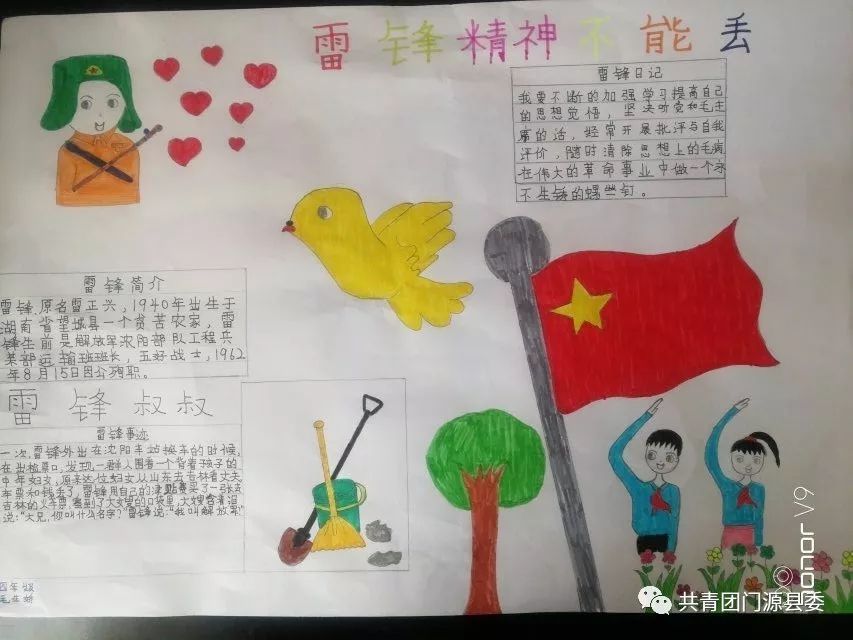 雷锋精神不能丢
雷锋日记
我要不断的加强学习提高自己
的思想觉悟，坚决听党和毛主
席的话，经常开展批评与自我
评价，随时清除思想上的毛病
在伟大的革命事业中做一个永
不生锈的螺丝钉。
雷锋简介
雷锋，原名雷正兴，1940年出生于
湖南省望城县一个贫苦农家，雷
锋生前是解放军沈阳部队工程兵
某部运输班班长，五好战士，1962
年8月15日因公殉职。
雷锋叔叔
雷锋事迹
一次，雷锋外出在沈阳车站换车的时候，
在出检票口，发现一群人围着一个背着孩子的
中年妇女，原来这位妇女从山东去吉林看丈夫
车票和钱丢了，雷锋用自己的津贴费买了一张去
吉林的火车票，塞到了大嫂的口袋里，大嫂含着泪
说："大兄，你叫什么名字？"雷锋说："我叫解放军"
四年级
honor V9
共青团门源县委